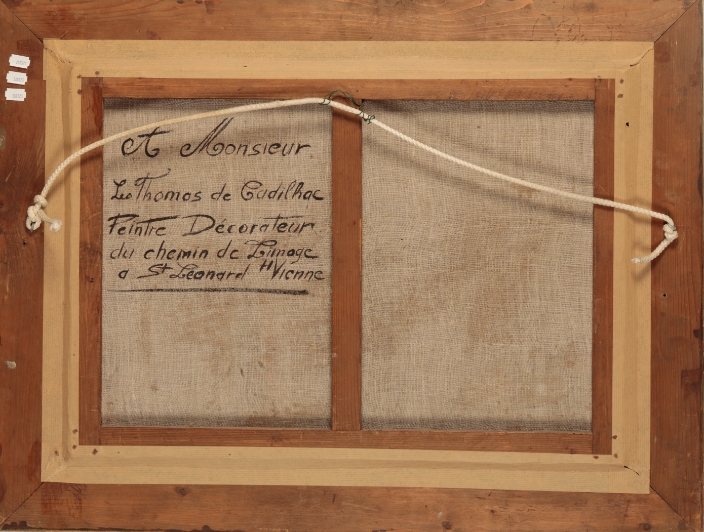 A Monsieur
Leo Thomas de Cadilhac
Peintre Décorateur
du chemin de Limoge
a St Leonard Hte Vienne